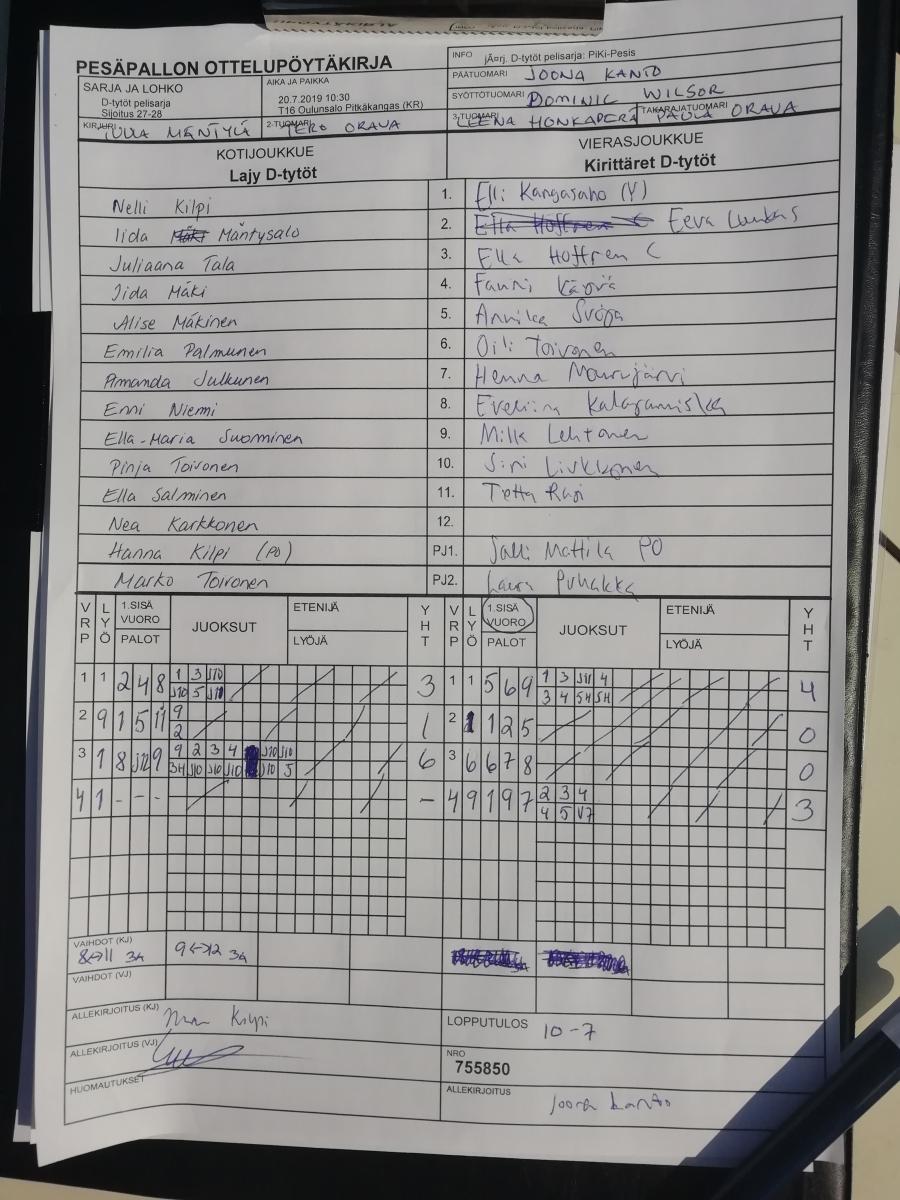 PESÄPALLON OTTELUPÖYTÄKIRJA
INFO jÃ¤rj. D-tytöt pelisarja: PiKi-Pesis
PÄÄTUOMARI JOONA KANTO
SARJA JA LOHKO
D-tytöt pelisarja
Sijoitus 27-28
AIKA JA PAIKKA
20.7.2019 10:30
T16 Oulunsalo Pitkäkangas (KR)
SYÖTTÖTUOMARI DOMINIC WILSOR
KIRJURI MÄNTYLÄ
2-TUOMARI TERO ORAVA
3-TUOMARI LEENA HONKAPERÄ
TAKARAJATUOMARI PAULA ORAVA
KOTIJOUKKUE
Lajy D-tytöt
VIERASJOUKKUE
Kirittäret D-tytöt
Nelli Kilpi 1. Elli Kangasaho (Y)
Iida Mäntysalo 2. Eeva Luukas
Juliaana Tala 3. Ella Hoffren C
Iida Mäki 4. Fanni
Alise Mäkinen 5. Annika
Emilia Palmunen 6. Oili Toivonen
Amanda Julkunen 7. Henna Mourujärvi
Enni Niemi 8. Eveliina
Ella-Maria Suominen 9. Milla Lehtonen
Pinja Toivonen 10. Sini Liukkonen
Ella Salminen 11. Tetta Rasi
Nea Karkkonen 12.
Hanna Kilpi (PO) PJ1. Salli Mattila PO
Marko Toivonen PJ2. Lauri Puhakka
VRP LYÖ 1.SISÄ VUORO PALOT JUOKSUT ETENIJÄ LYÖJÄ YHT VRP LYÖ 1.SISÄ VUORO PALOT JUOKSUT ETENIJÄ LYÖJÄ YHT
1 1 2 4 8 1 3 J10 3 1 1 5 6 9 1 3 J11 4 4
J10 5 J11 3 4 5H 5H
2 9 1 5 11 9 1 2 1 1 2 5 0
2
3 1 8 J12 9 9 2 3 4 J10 J10 6 3 6 6 7 8 0
3H J10 J10 J10 J10 5
4 1 - - - - 4 9 1 9 7 2 3 4 3
4 5 V7
VAIHDOT (KJ)
8<->11 3A 9<->12 3A
VAIHDOT (VJ)
ALLEKIRJOITUS (KJ) Kilpi
LOPPUTULOS 10-7
ALLEKIRJOITUS (VJ)
NRO
755850
HUOMAUTUKSET
ALLEKIRJOITUS
Joona Kanto